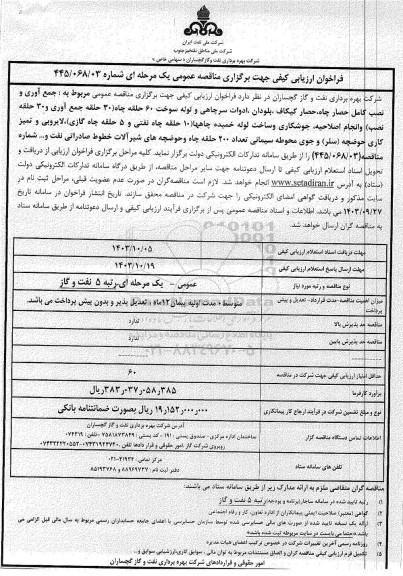 شرکت ملی نفت ایران
شرکت ملی مناطق نفتخیز جنوب
شرکت بهره برداری نفت و گاز گچساران « سهامی خاص »
فراخوان ارزیابی کیفی جهت برگزاری مناقصه عمومی یک مرحله ای شماره ۴۴۵/۰۶۸/۰۳
شرکت بهره برداری نفت و گاز گچساران در نظر دارد فراخوان ارزیابی کیفی جهت برگزاری مناقصه عمومی مربوط به : جمع آوری و
نصب کامل حصار چاه،حصار کیتکاف ،بلودان ،ادوات سرچاهی و لوله سوخت ۶۰ حلقه چاه(۳۰ حلقه جمع آوری و۳۰ حلقه
نصب) وانجام اصلاحیه، جوشکاری وساخت لوله خمیده چاهها(۱۰ حلقه چاه نفتی و ۵ حلقه چاه گازی)،لایروبی و تمیز
کاری حوضچه (سلر) و جوی محوطه سیمانی تعداد ۲۰۰ حلقه چاه وحوضچه های شیرآلات خطوط صادراتی نفت و... شماره
مناقصه(۴۴۵/۰۶۸/۰۳) را از طریق سامانه تدارکات الکترونیکی دولت برگزار نماید. کلیه مراحل برگزاری فراخوان ارزیابی از دریافت و
تحویل اسناد استعلام ارزیابی کیفی تا ارسال دعوتنامه جهت سایر مراحل مناقصه، از طریق درگاه سامانه تدارکات الکترونیکی دولت
(ستاد) به آدرس www.setadiran.ir انجام خواهد شد. لازم است مناقصه‌گران در صورت عدم عضویت قبلی، مراحل ثبت نام در
سایت مذکور و دریافت گواهی امضای الکترونیکی را جهت شرکت در مناقصه محقق سازند. تاریخ انتشار فراخوان در سامانه تاریخ
۱۴۰۳/۰۹/۲۷ می باشد. اطلاعات و اسناد مناقصه عمومی پس از برگزاری فرآیند ارزیابی کیفی و ارسال دعوتنامه از طریق سامانه ستاد
به مناقصه گران ارسال خواهد شد.
مهلت دریافت اسناد استعلام ارزیابی کیفی
۱۴۰۳/۱۰/۰۵
مهلت ارسال پاسخ استعلام ارزیابی کیفی
۱۴۰۳/۱۰/۱۹
نوع مناقصه و رتبه مورد نیاز
عمومی - یک مرحله ای-رتبه ۵ نفت و گاز
میزان اهمیت مناقصه-مدت قرارداد- تعدیل و پیش پرداخت
متوسط - مدت اولیه پیمان۱۲ماه - تعدیل پذیر و بدون پیش پرداخت می باشد.
مناقصه حد پذیرش بالا
مناقصه حد پذیرش پایین
حداقل امتیاز ارزیابی کیفی جهت شرکت در مناقصه
۶۰
برآورد کارفرما
۳۸۵٫۰۵۸٫۰۳۷٫۳۸۳ریال
نوع و مبلغ تضمین شرکت در فرآیند ارجاع کار پیمانکاری
۱۹٫۱۵۲٫۰۰۰٫۰۰۰ ریال بصورت ضمانتنامه بانکی
اطلاعات تماس دستگاه مناقصه گزار
آدرس شرکت بهره برداری نفت و گاز گچساران
ساختمان اداره مرکزی - صندوق پستی : ۱۹۱ - کد پستی : ۷۵۸۱۸۷۳۸۴۹ -تلفن: ۰۷۴۳۱۹
تلفن های سامانه ستاد
مرکز تماس: ۴۱۹۳۴-۰۲۱
دفتر ثبت نام : ۸۸۹۶۹۷۳۷ و ۸۵۱۹۳۷۶۸
مناقصه گران متقاضی ملزم به ارائه مدارک زیر از طریق سامانه ستاد می باشند:
۱) رتبه تایید شده در سامانه ساجار(برنامه و بودجه)رتبه ۵ نفت و گاز
۲) گواهی (معتبر) صلاحیت ایمنی پیمانکاران از اداره تعاون، کار و رفاه اجتماعی
۳) ارائه یک نسخه تایید شده از صورت های مالی حسابرسی شده توسط سازمان حسابرسی یا اعضای جامعه حسابداران رسمی مربوط به سال مالی قبل الزامی می
۴) روزنامه رسمی آخرین تغییرات شرکت در خصوص ترکیب اعضای هیات مدیره
۵) تکمیل فرم ارزیابی کیفی مناقصه گران و الصاق مستندات مربوط به توان مالی ، سوابق کاری،ارزشیابی سوابق و....
امور حقوقی و قراردادهای شرکت بهره برداری نفت و گاز گچساران